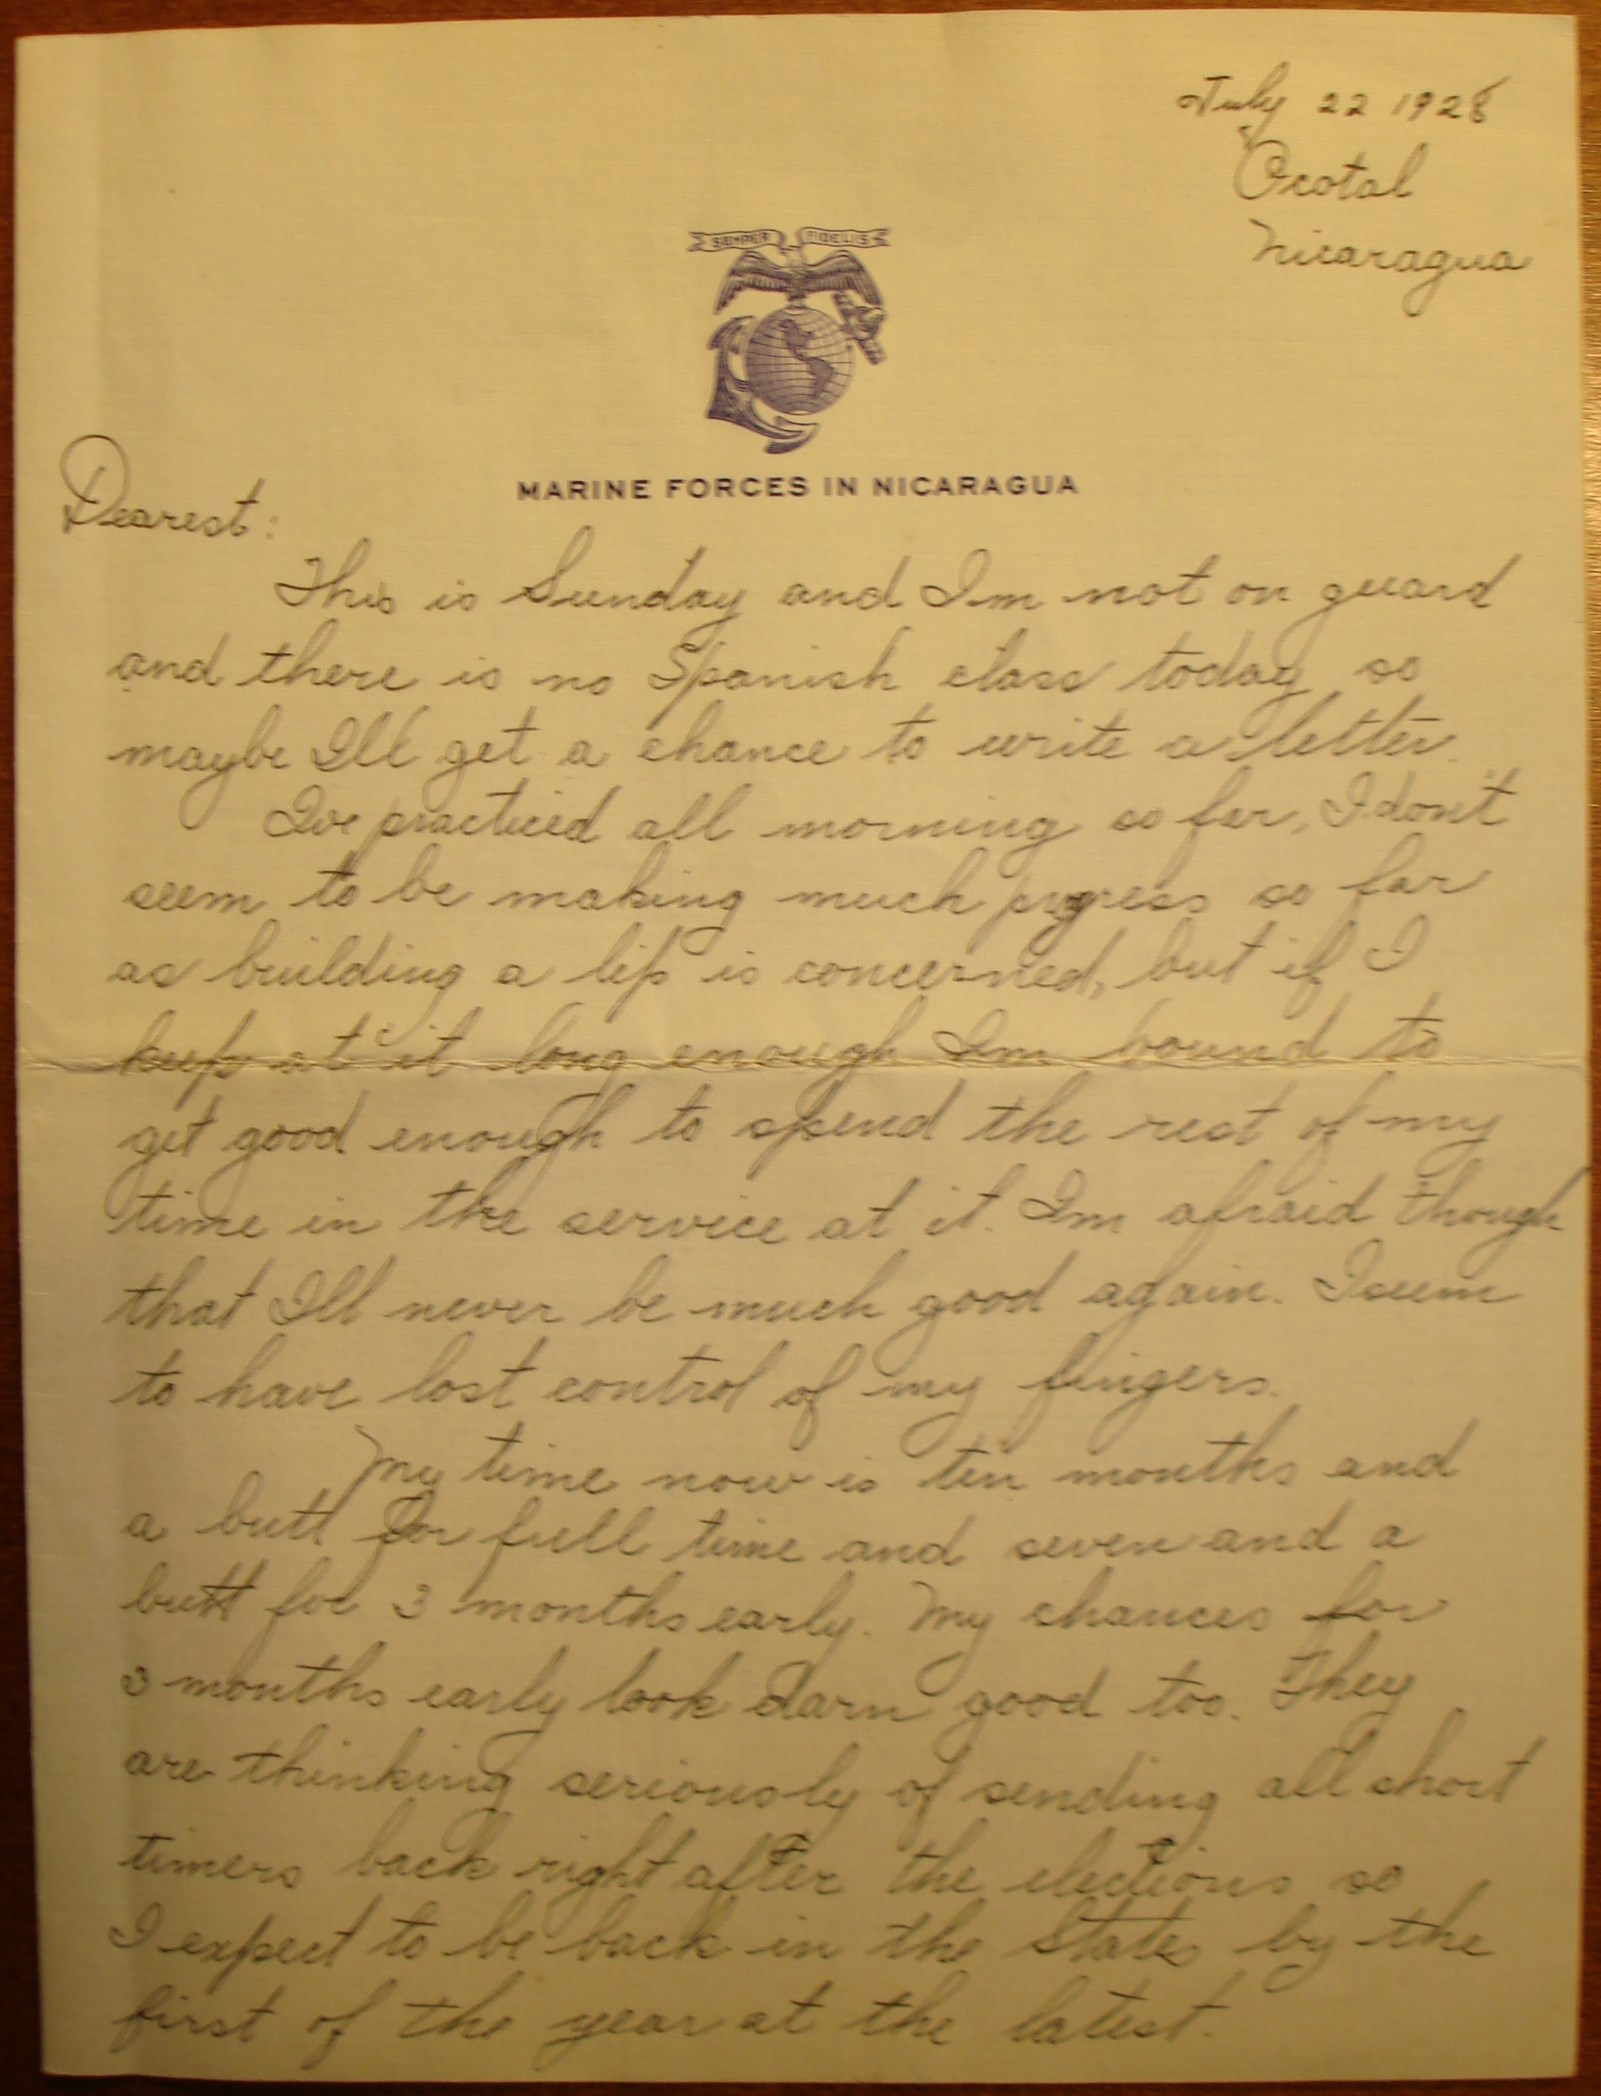 July 22 1928
Ocotal
Nicaragua
SEMPER FIDELIS
MARINE FORCES IN NICARAGUA
Dearest:
This is Sunday and Im not on guard
and there is no Spanish class today so
maybe Ill get a chance to write a letter.
Ive practiced all morning so far, I don't
seem to be making much progress so far
as building a lip is concerned, but if I
keep at it long enough Im bound to
get good enough to spend the rest of my
time in the service at it. Im afraid though
that Ill never be much good again. I seem
to have lost control of my fingers.
My time now is ten months and
a butt for full time and seven and a
butt for 3 months early. My chances for
3 months early look darn good too. They
are thinking seriously of sending all short
timers back right after the elections so
I expect to be back in the States by the
first of the year at the latest.